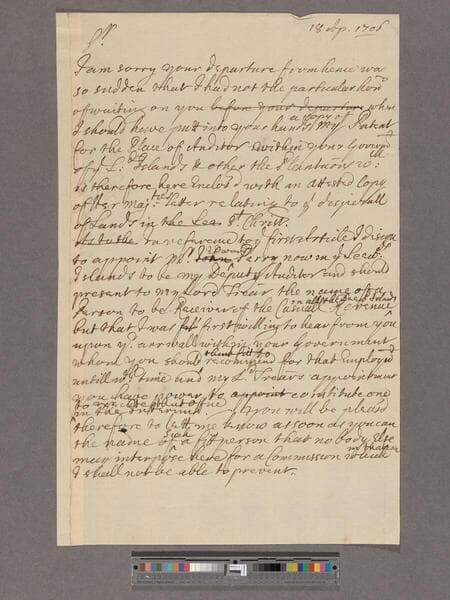 18 Ap. 1706
Sr.
I am sorry your departure from hence was
so sudden that I had not the particular honr
of waiting on you before your departure when
I should have putt into your hands a copy of My Patent
for the Place of Auditor within your Governmt
of ye Ld Islands & other the Plantations wch
is therefore here Enclosd with an attested Copy
of Her Majties Letter relating to ye disposall
of Lands in the Lea St Christrs.
As to the In reference to ye first Article I design
to appoint Mr. John Edward Perry now in ye Leewd
Islands to be my Deputy Auditor and should
present to my Lord Trear the name of a
Person to be Receiver of the Casual Revenue in all the said Islands
but that I was first willing to hear from you
upon yr. arrivall within your Government
whom you should think fitt to recommend for that Employmt
untill wch time and my Ld Trears appointment
you have power to appoint constitute one
to officiate
in the Interim. You will be pleased
therefore to lett me know as soon as you can
the name of such a fitt person that no body Else
may interpose here for a Commission which
I shall not be able to prevent.